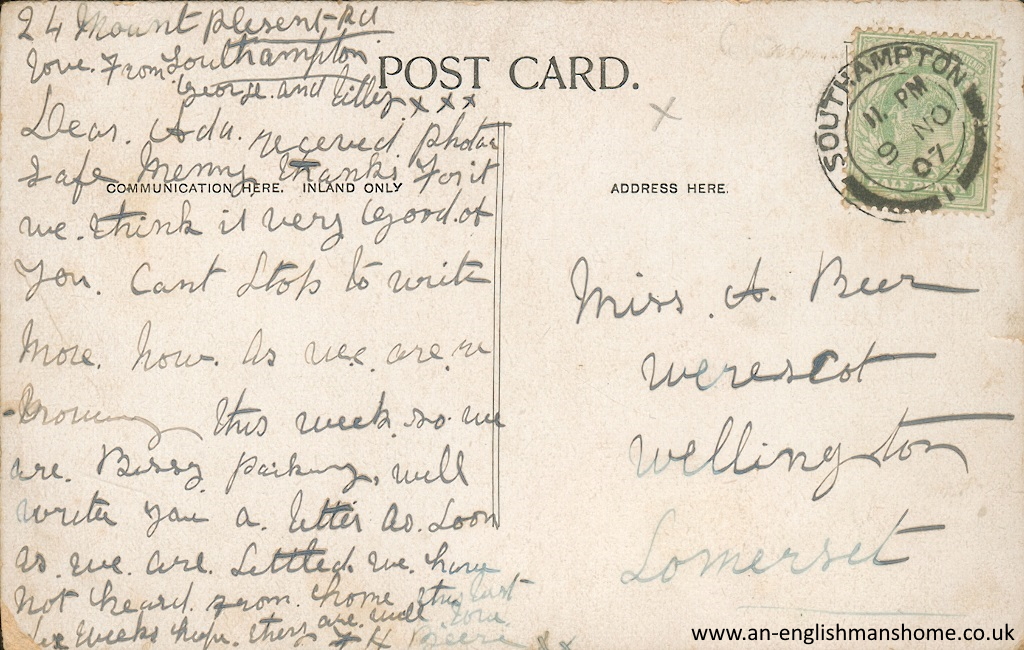 24 Mount Plesent Rd
love. From Southampton
George. and Lilley x x x
POST CARD.
SOUTHAMPTON
11. PM
NO
9
07
Dear. Ada. receved photo
safe Menny thanks For it
COMMUNICATION HERE. INLAND ONLY
ADDRESS HERE.
we. think it very Good. of
you. Cant stop to write
More. now. as we. are. re
-moving this week. so we
are. Bussy packing, will
write you a. letter as. soon
as. we. are. settled. we. have
not heard. from. home. this last
weeks hope. they are. well
Beer x x
Miss. A. Beer
Werescot
Wellington
Somerset
www.an-englishmanshome.co.uk